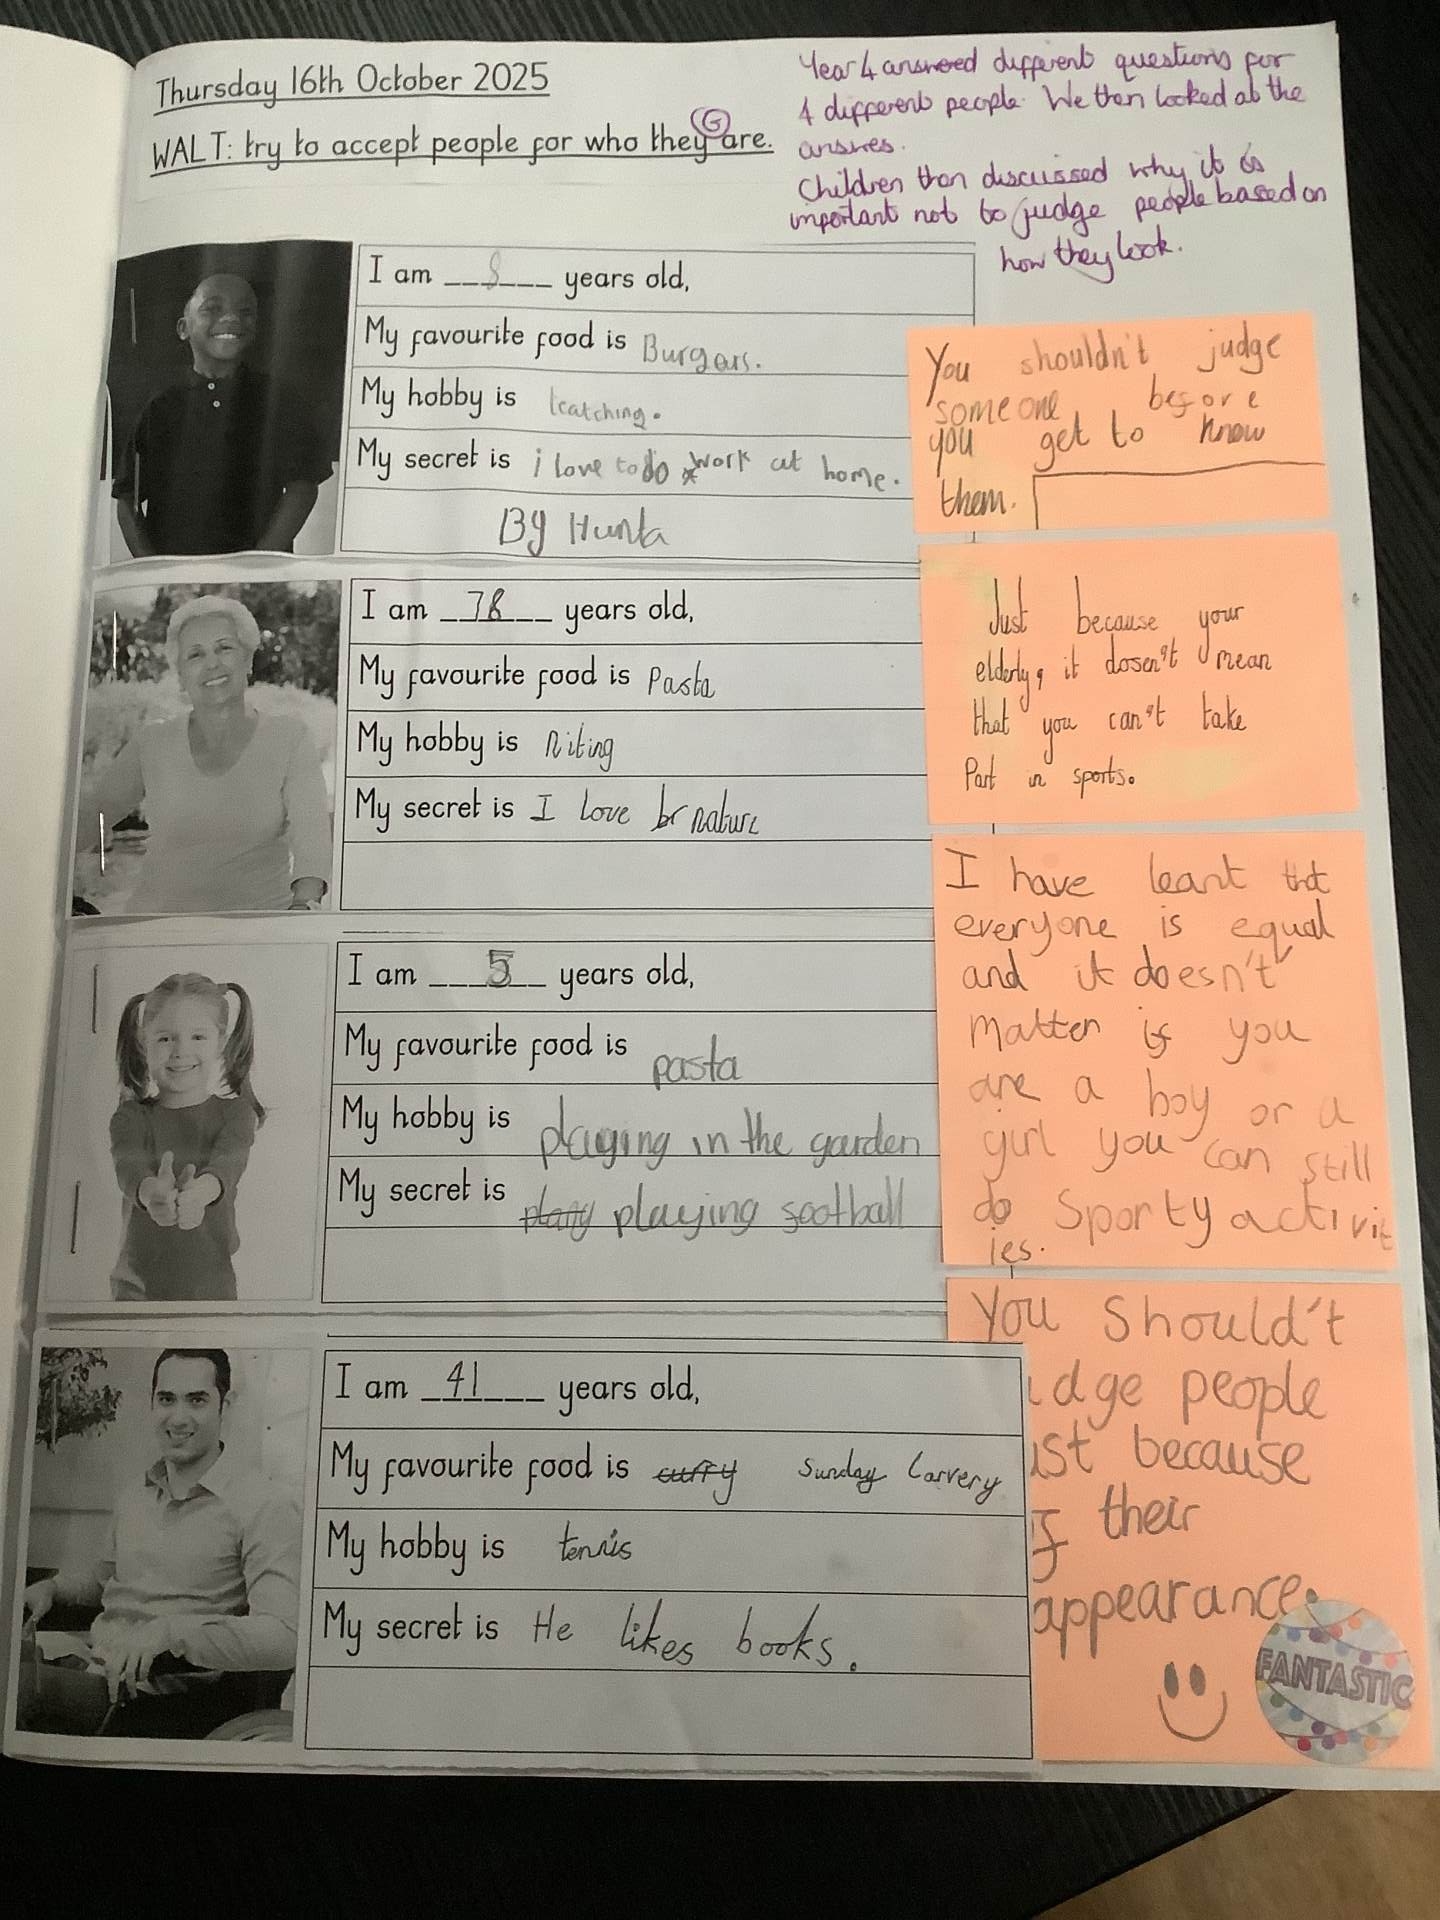 Thursday 16th October 2025
WALT: try to accept people for who they are.
G
Year 4 answered different questions for
4 different people. We then looked at the
answres.
Children then discussed why it is
important not to judge people based on
how they look.
I am ___8___ years old,
My favourite food is Burgers.
My hobby is teatching.
My secret is i love to do work at home.
By Hunta
I am _78___ years old,
My favourite food is Pasta
My hobby is Niting
My secret is I love br nature
I am ___5__ years old,
My favourite food is pasta
My hobby is playing in the garden
My secret is playing football
I am _41___ years old,
My favourite food is curry Sunday Carvery
My hobby is tennis
My secret is He likes books.
You shouldn't judge
someone before
you get to know
them.
Just because your
elderly, it dosen't mean
that you can't take
Part in sports.
I have leant that
everyone is equal
and it doesn't
matter if you
are a boy or a
girl you can still
do Sporty activit
ies.
You Should't
dge people
ust because
f their
appearance.
FANTASTIC